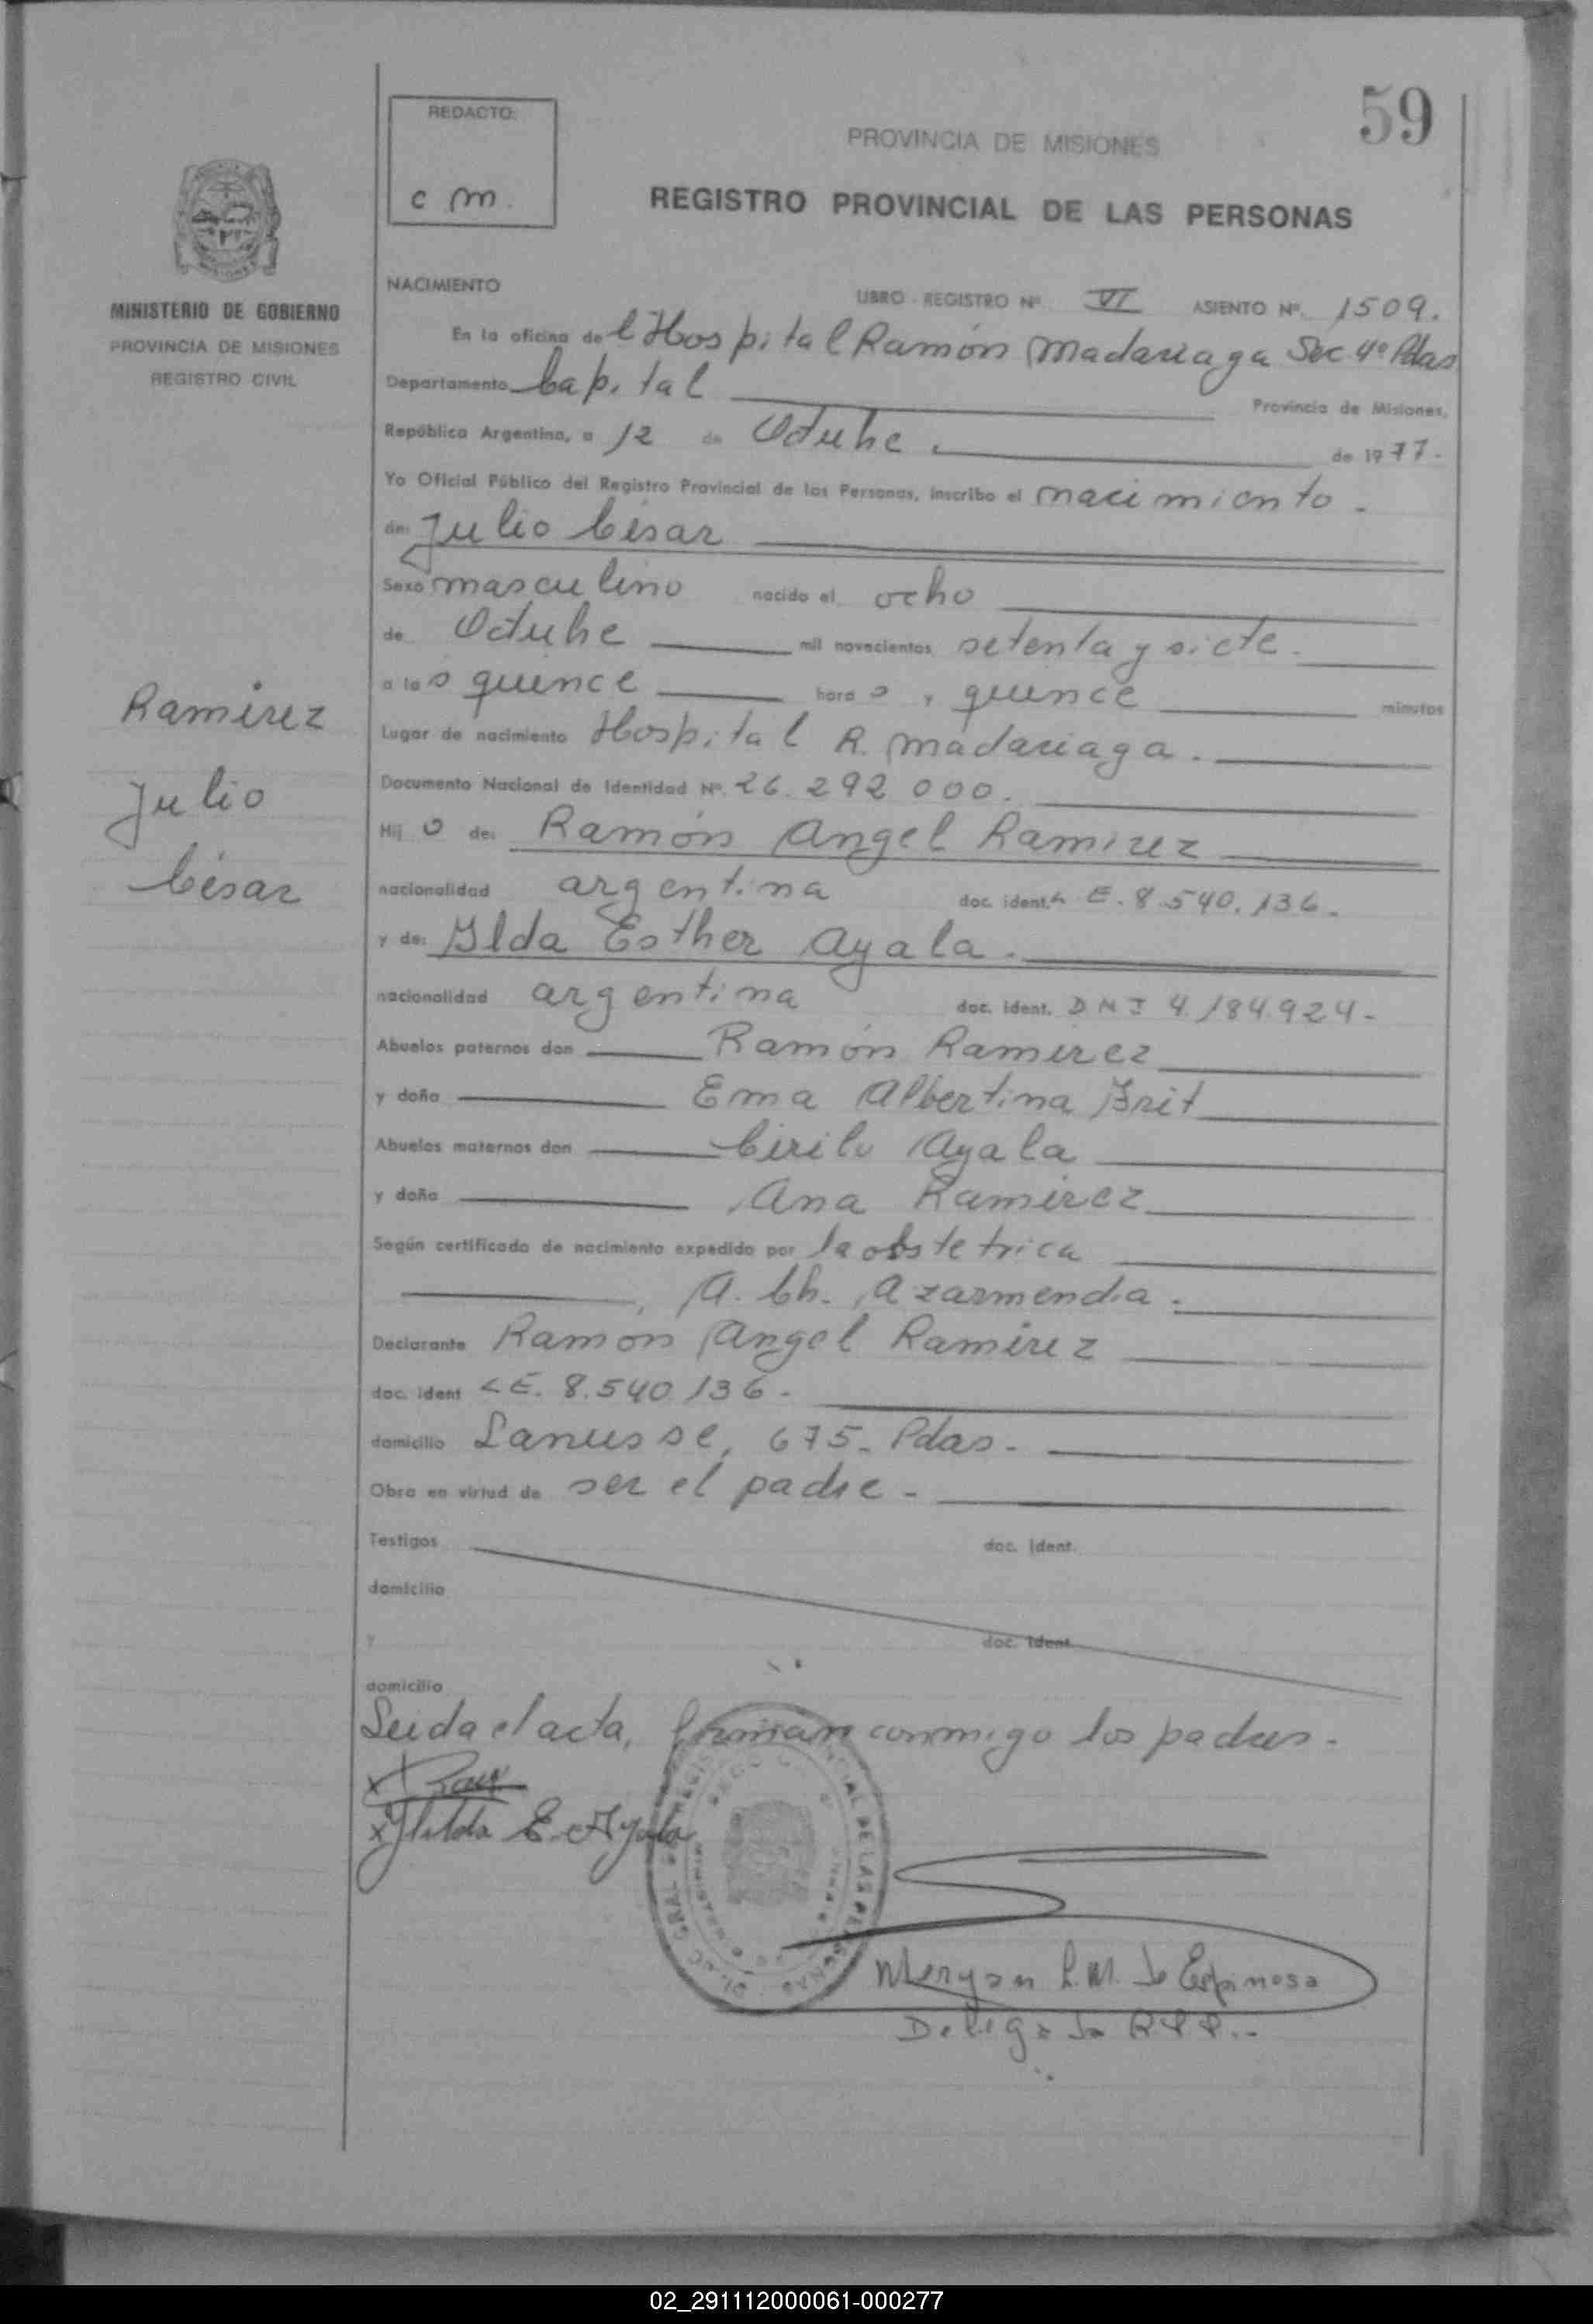 59
REDACTO:
c m.
PROVINCIA DE MISIONES
REGISTRO PROVINCIAL DE LAS PERSONAS
MINISTERIO DE GOBIERNO
PROVINCIA DE MISIONES
REGISTRO CIVIL
NACIMIENTO
LIBRO REGISTRO Nº VI ASIENTO Nº 1509.
En la oficina del Hospital Ramón Madariaga Sec 4º Pdas
Departamento Capital Provincia de Misiones,
República Argentina, a 12 de Octubre de 1977.
Yo Oficial Público del Registro Provincial de las Personas, inscribo el nacimiento.
de: Julio César
Sexo masculino nacido el ocho
de Octubre mil novecientos setenta y siete.
a las quince horas y quince minutos
Lugar de nacimiento Hospital R. Madariaga.
Documento Nacional de Identidad Nº 26.292 000.
Hijo de: Ramón Angel Ramirez
nacionalidad argentina doc. ident. L E. 8.540.136.
y de: Ilda Esther Ayala.
nacionalidad argentina doc. ident. D N I 4.184.924-
Abuelos paternos don Ramón Ramirez
y doña Ema Albertina
Abuelos maternos don Cirilo Ayala
y doña Ana Ramirez
Según certificado de nacimiento expedido por la obstetrica
A. Ch. Azarmendia.
Declarante Ramón Angel Ramirez
doc. ident L E. 8.540 136-
domicilio Lanusse, 675- Pdas-
Obra en virtud de ser el padre-
Testigos doc. ident.
domicilio
y doc. ident.
domicilio
Leida el acta, firman conmigo los padres-
x
x Ilda E. Ayala
DE LAS PERSONAS
Meryan L.M. de Espinosa
Delegada R.P.P.-
Ramirez
Julio
César
02_291112000061-000277